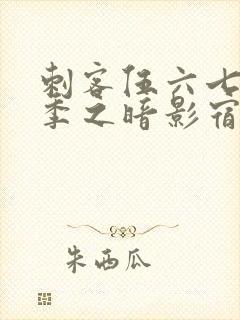 刺客伍六七
季之暗影宿
朱西瓜